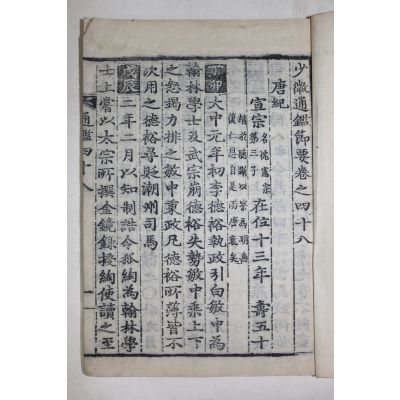 少微通鑑節要卷之四十八
唐紀
宣宗 名忱憲宗第三子 在位十三年 壽五十
精於聽斷以察爲明無復仁恩自是而唐衰矣
丁卯 大中元年初李德裕執政引白敏中爲
翰林學士及武宗崩德裕失勢敏中乘上下
之怒竭力排之敏中秉政凡德裕所薄皆不
次用之德裕尋貶潮州司馬
戊辰 二年二月以知制誥令狐綯爲翰林學
士上嘗以太宗所撰金鏡錄授綯使讀之至
通鑑四十八
一